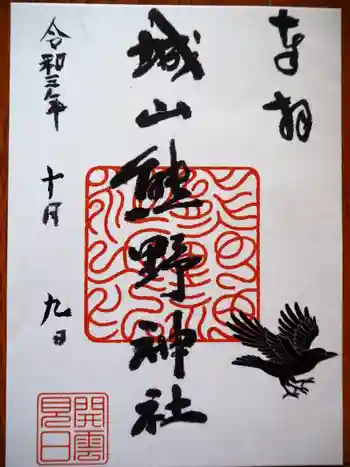 奉拝
城山熊野神社
令和三年 十月 九日
開雲見日